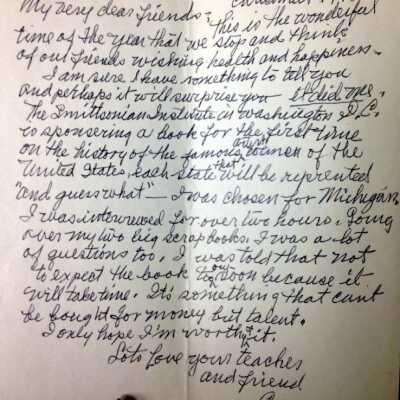 My very dear friends-
this is the wonderful
time of the year that we stop and think
of our friends wishing health and happiness-
I am sure I have something to tell you
and perhaps it will surprise you it did me.
The Smithsonian Institute in Washington D.C.
is sponsering a book for the first time
on the history of the famous women of the
United States, each state that will be reprented
"and guess what" - I was chosen for Michigan.
I was interviewed for over two hours. Going
over my two big scrapbooks. I was a lot
of questions too. I was told that not
to expect the book too soon because it
will take time. It's something that can't
be bought for money but talent.
I only hope I'm worthy it.
Lots Love your teacher
and friend